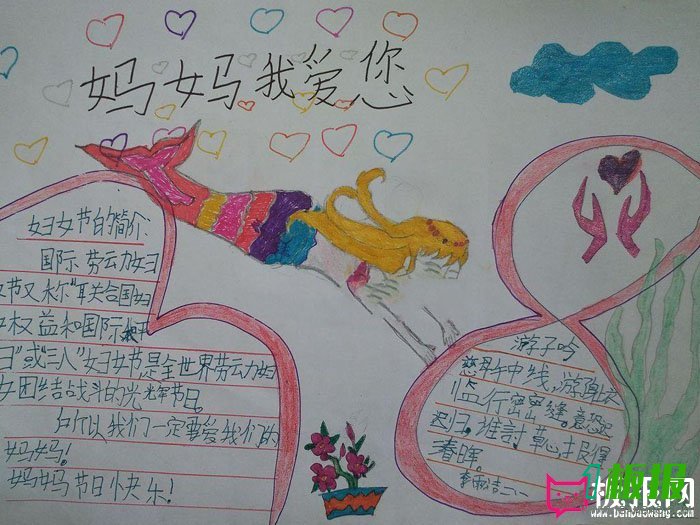 妈妈我爱您
妇女节的简介
国际劳动妇
女节又称"联合国妇
女权益和国际和平
日"或"三八"妇女节是全世界劳动妇
女团结战斗的光辉节日。
所以我们一定要爱我们的
妈妈！
妈妈节日快乐！
游子吟
慈母手中线，游
临行密密缝。意恐
迟归。谁
春晖。
板报
板报网
www.banbaowang.com